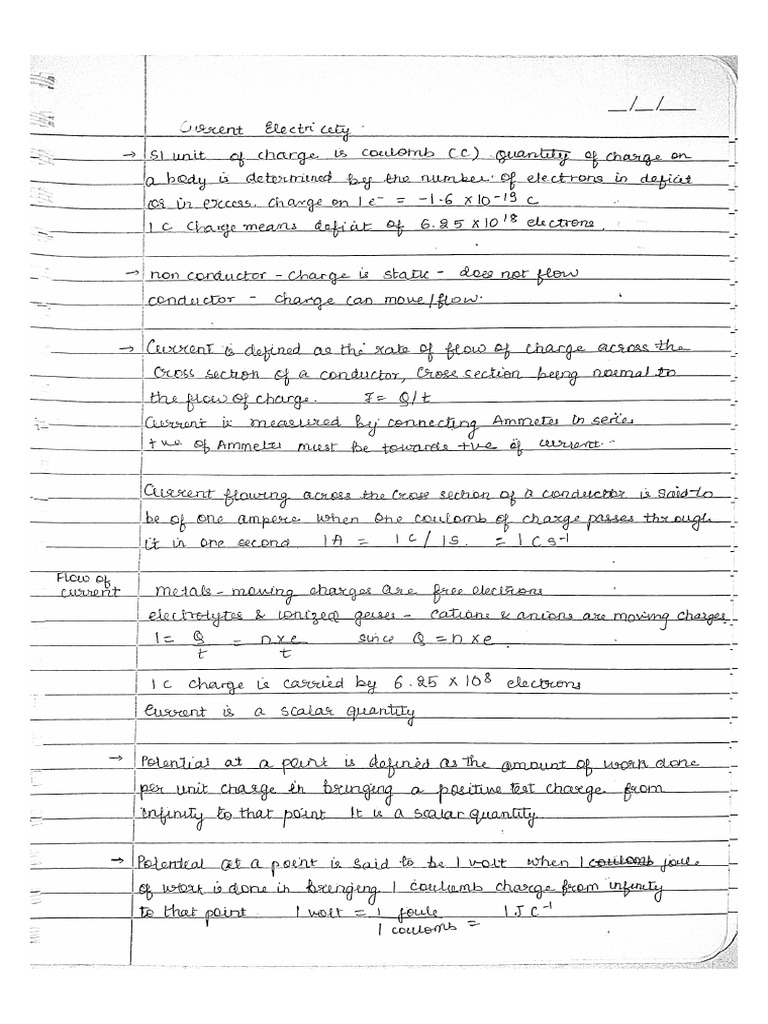 _/_/__
Current Electricety.
→ SI unit of charge is coulomb (C). Quantity of charge on
a body is determined by the number of electrons in deficit
or in excess. Charge on 1 e⁻ = -1.6 × 10⁻¹⁹ C
1 C charge means deficit of 6.25 × 10¹⁸ electrons.
→ non conductor - charge is static - does not flow
conductor - charge can move/flow.
→ Current is defined as the rate of flow of charge across the
cross section of a conductor, cross section being normal to
the flow of charge. I = Q/t
Current is measured by connecting Ammeter in series
+ve of Ammeter must be towards +ve of current.
Current flowing across the cross section of a conductor is said to
be of one ampere when one coulomb of charge passes through
it in one second 1A = 1C/1s. = 1Cs⁻¹
Flow of
current
metals - moving charges are free electrons
electrolytes & ionized gases - cations & anions are moving charges
I = Q/t = n×e/t since Q = n×e
1 C charge is carried by 6.25 × 10⁸ electrons
Current is a scalar quantity
→ Potential at a point is defined as the amount of work done
per unit charge in bringing a positive test charge from
infinity to that point It is a scalar quantity
→ Potential at a point is said to be 1 volt when 1 coulomb joule
of work is done in bringing 1 coulomb charge from infinity
to that point 1 volt = 1 joule 1JC⁻¹
1 coulomb =